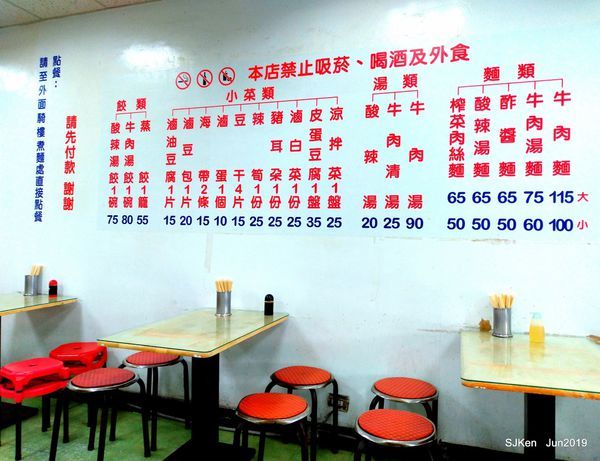 本店禁止吸菸、喝酒及外食
麵類
牛肉麵 115 100
牛肉湯麵 75 60
酢醬麵 65 50
酸辣湯麵 65 50
榨菜肉絲麵 65 50
大
小
湯類
牛肉湯 90
牛肉清湯 25
酸辣湯 20
小菜類
涼拌菜1盤 25
皮蛋豆腐1盤 35
滷白菜1份 25
豬耳朵1份 25
辣筍1份 25
豆干4片 15
滷蛋1個 10
海帶2條 15
滷豆包1片 20
滷油豆腐1片 15
餃類
蒸餃1籠 55
牛肉湯餃1碗 80
酸辣湯餃1碗 75
請先付款 謝謝
點餐:
請至外面騎樓煮麵處直接點餐
SJKen Jun2019